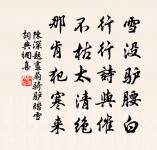 雪没驴腰白
行行诗兴催
不枯太清绝
那肯犯寒来
陈深题画扇骑驴踏雪
词典网集